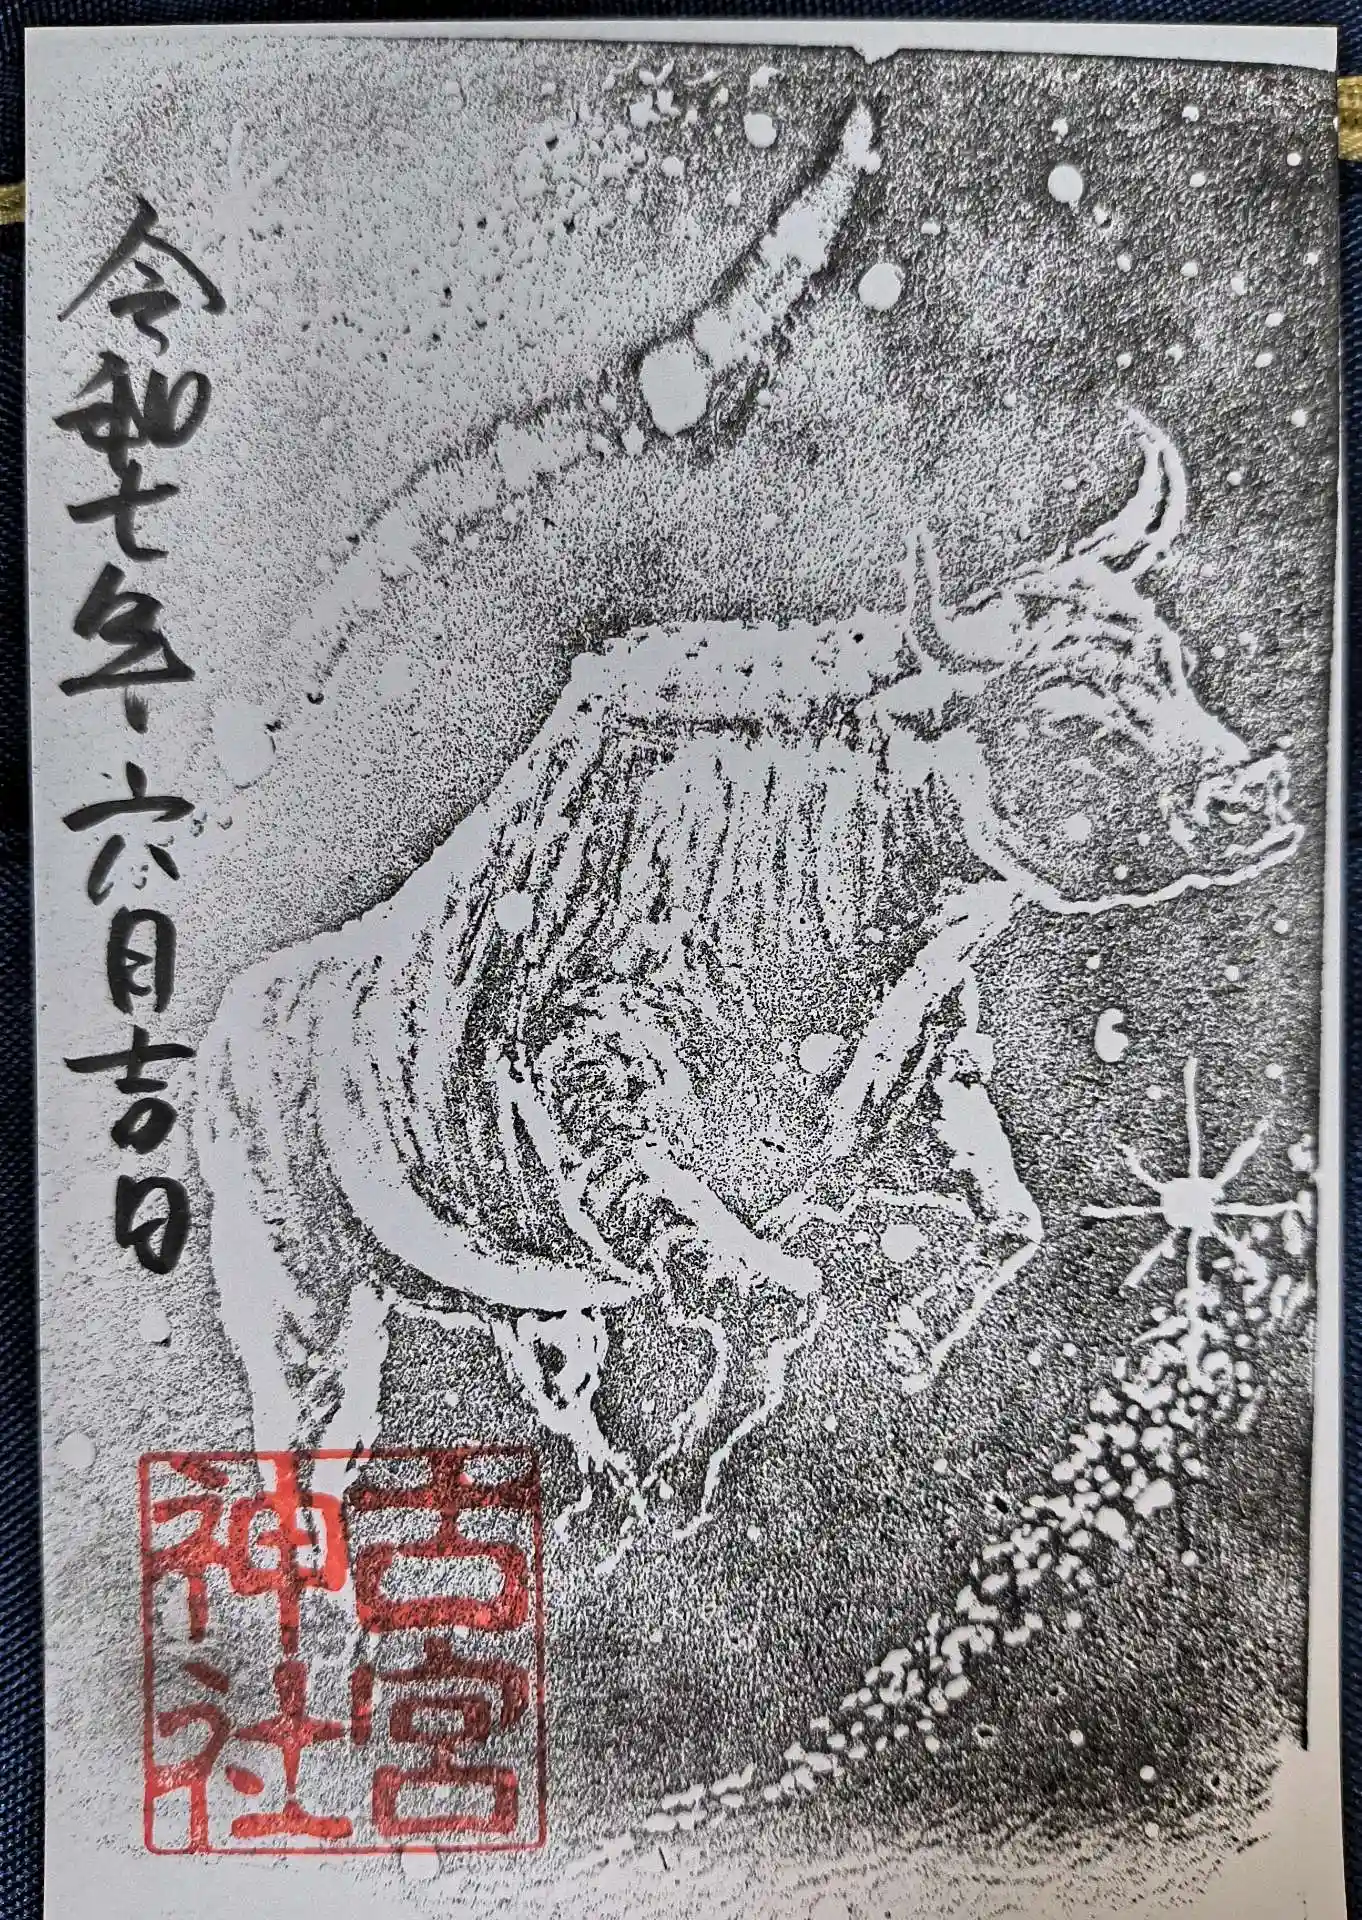 令和七年六月吉日
古宮
神社